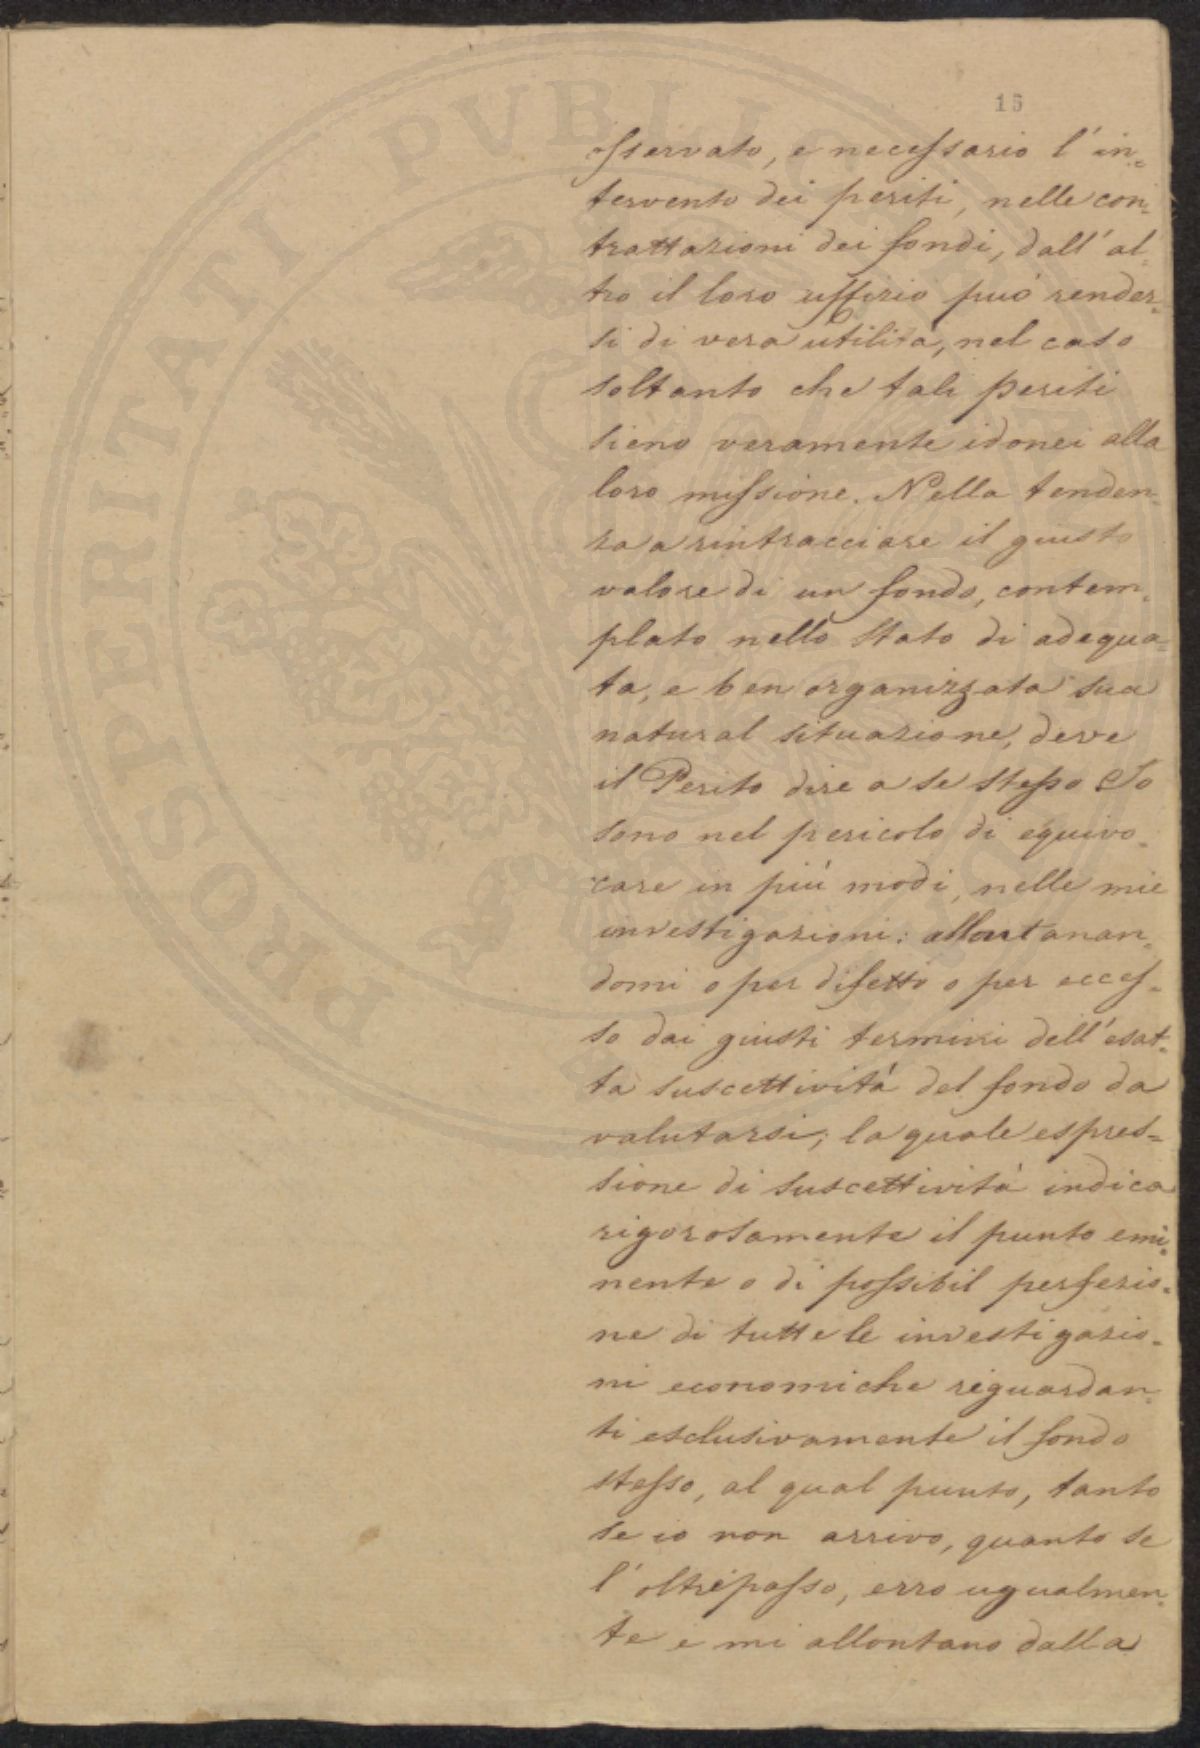 15
osservato, e necessario l'in=
tervento dei periti, nelle con=
trattazioni dei fondi, dall'al=
tro il loro uffizio può render=
si di vera utilita, nel caso
soltanto che tali periti
sieno veramente idonei alla
loro missione. Nella tenden=
za a rintracciare il giusto
valore di un fondo, contem=
plato nello stato di adequa=
ta, e ben organizzata sua
natural situazione, deve
il Perito dire a se stesso Io
sono nel pericolo di equivo=
care in più modi, nelle mie
investigazioni: allontanan=
domi o per difetto o per ecces=
so dai giusti termini dell'esat=
ta suscettività del fondo da
valutarsi; la quale espres=
sione di suscettività indica
rigorosamente il punto emi=
nente o di possibil perfezio=
ne di tutte le investigazio=
ni economiche riguardan=
ti esclusivamente il fondo
stesso, al qual punto, tanto
se io non arrivo, quanto se
l'oltrepasso, erro ugualmen=
te e mi allontano dalla
PROSPERITATI PVBLIC